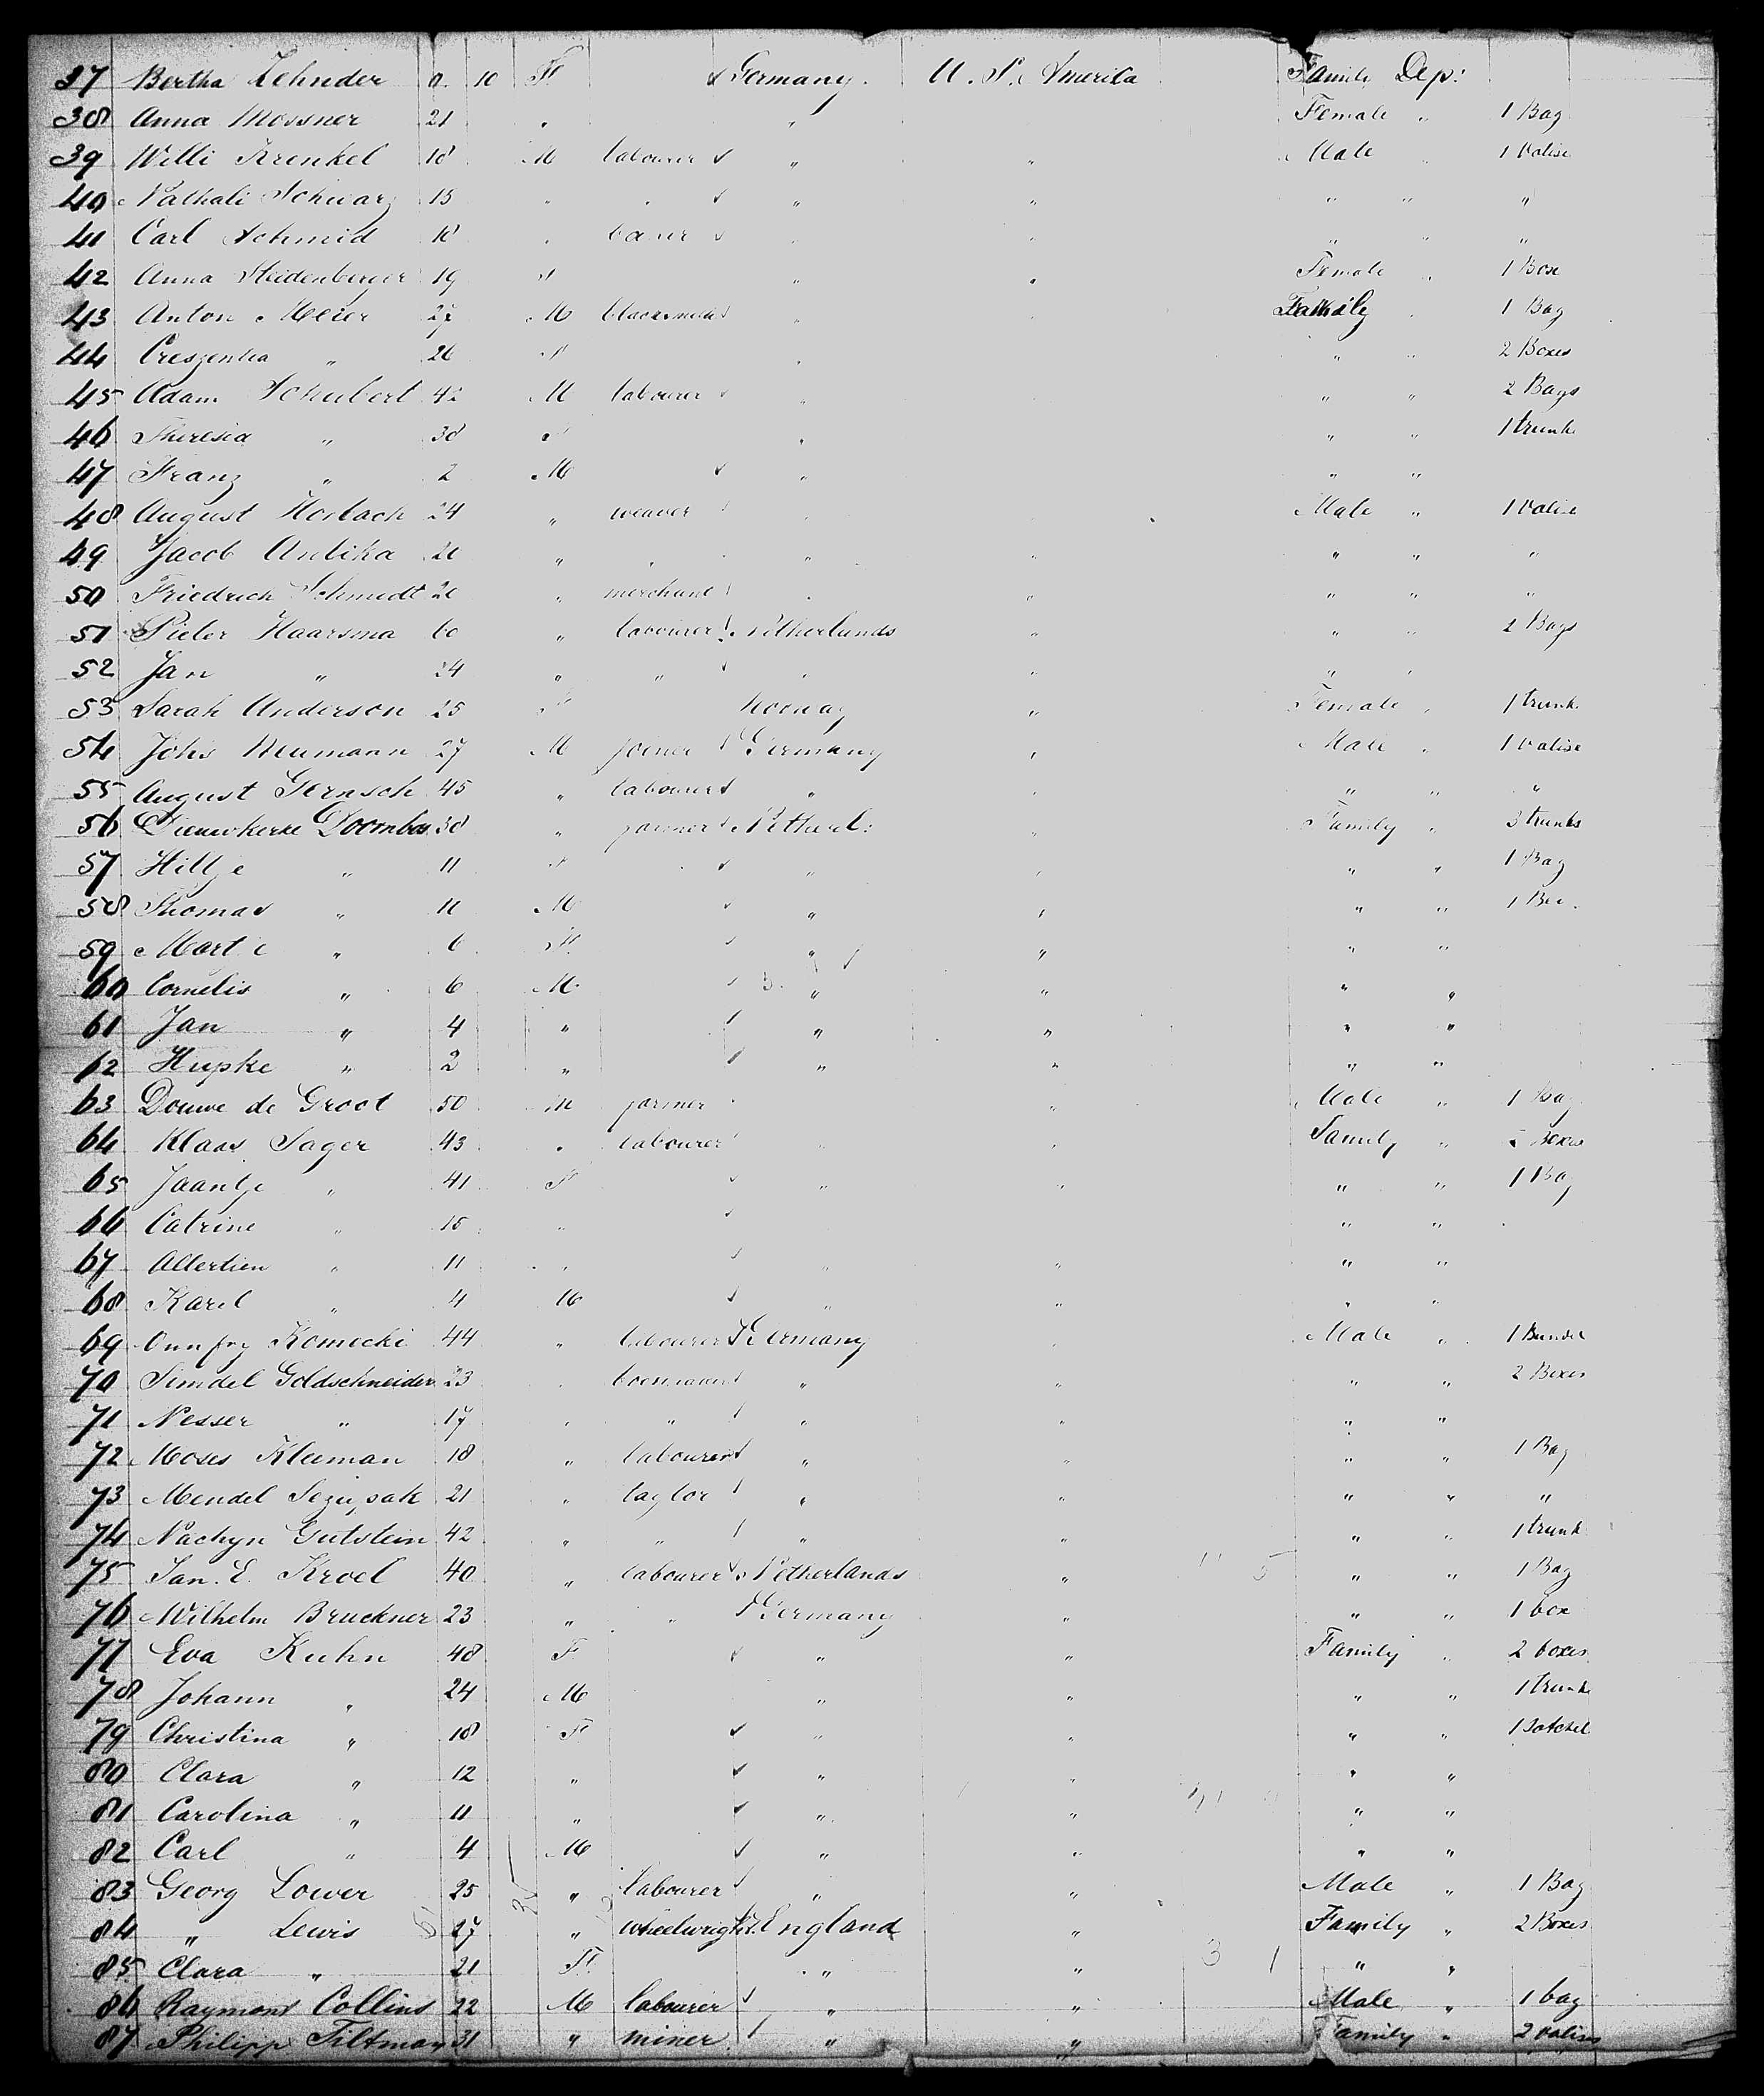 37 Bertha Zehnder 0. 10 F ✓ Germany. U. S. Amerika Family Dep:
38 Anna Mossner 21 " " Female " 1 Bag
39 Willi Krenkel 18 M labourer ✓ " " Male " 1 Valise
40 Nathali Schwarz " ✓ " " " " "
41 Carl Schmid 18 " ✓ " " " " "
42 Anna 19 F " " Female " 1 Box
43 Anton Meier 27 M blacksmith " " Family " 1 Bag
44 Creszentia " 26 F " " " 2 Boxes
45 Adam Schubert 42 M labourer " " " 2 Bags
46 Theresia " 38 F " " " 1 trunk
47 Franz " 2 M ✓ " " "
48 August Horbach 24 " weaver " Male " 1 Valise
49 Jacob Antika " " " " " " "
50 Friedrich Schmidt " merchant " " " " "
51 Pieter Haarsma 60 " labourer Netherlands " " " 2 Bags
52 Jan " 24 " " ✓ " " " "
53 Sarah Anderson 25 F Norway " Female " 1 trunk
54 Johs Neumann 27 M joiner Germany " Male " 1 Valise
55 August Gernsch 45 " labourer " " " " "
56 Doornbos 38 " farmer Netherl: " Family " 3 trunks
57 Hiltje " 11 F ✓ " " " " 1 Bag
58 Thomas " M ✓ " " " "
59 Martje " F ✓ " " " "
60 Cornelis " 6 M ✓ " " " "
61 Jan " 4 " ✓ " " " "
62 Hupke " 2 " ✓ " " " "
63 Douwe de Groot 50 M farmer " Male " 1 Bag
64 Klaas Sager 43 " labourer " " Family " Boxes
65 Jaantje " 41 F ✓ " " " " 1 Bag
66 Catrine " 15 " ✓ " "
67 Allertien " 11 " ✓ " " " "
68 Karel " 4 M ✓ " " " "
69 Komecki 44 " labourer Germany " Male " 1 Bundel
70 Simdel Goldschneider 23 " " " " " 2 Boxes
71 Nesser " 17 " " " " " "
72 Moses Kleiman 18 " labourer " " " " 1 Bag
73 Mendel 21 " taylor " " " " "
74 Nachyn Gutstein 42 " " " " " " 1 trunk
75 Jan. E. Kroel 40 " labourer Netherlands " " " 1 Bag
76 Wilhelm Bruckner 23 " " Germany " " " 1 box
77 Eva Kuhn 48 F ✓ " " Family " 2 boxes
78 Johann " 24 M " " " " 1 trunk
79 Christina " 18 F ✓ " " " " 1 Satchel
80 Clara " 12 " ✓ " " " "
81 Carolina " 11 " ✓ " " " "
82 Carl " 4 M ✓ " " " "
83 Georg Lower 25 " labourer ✓ " " Male " 1 Bag
84 " Lewis 27 " wheelwright England " Family " 2 Boxes
85 Clara " 21 F. " " " "
86 Raymond Collins 22 M labourer ✓ " " Male " 1 bag
87 Philipp Tiltman 31 " miner ✓ " " Family " 2 valises